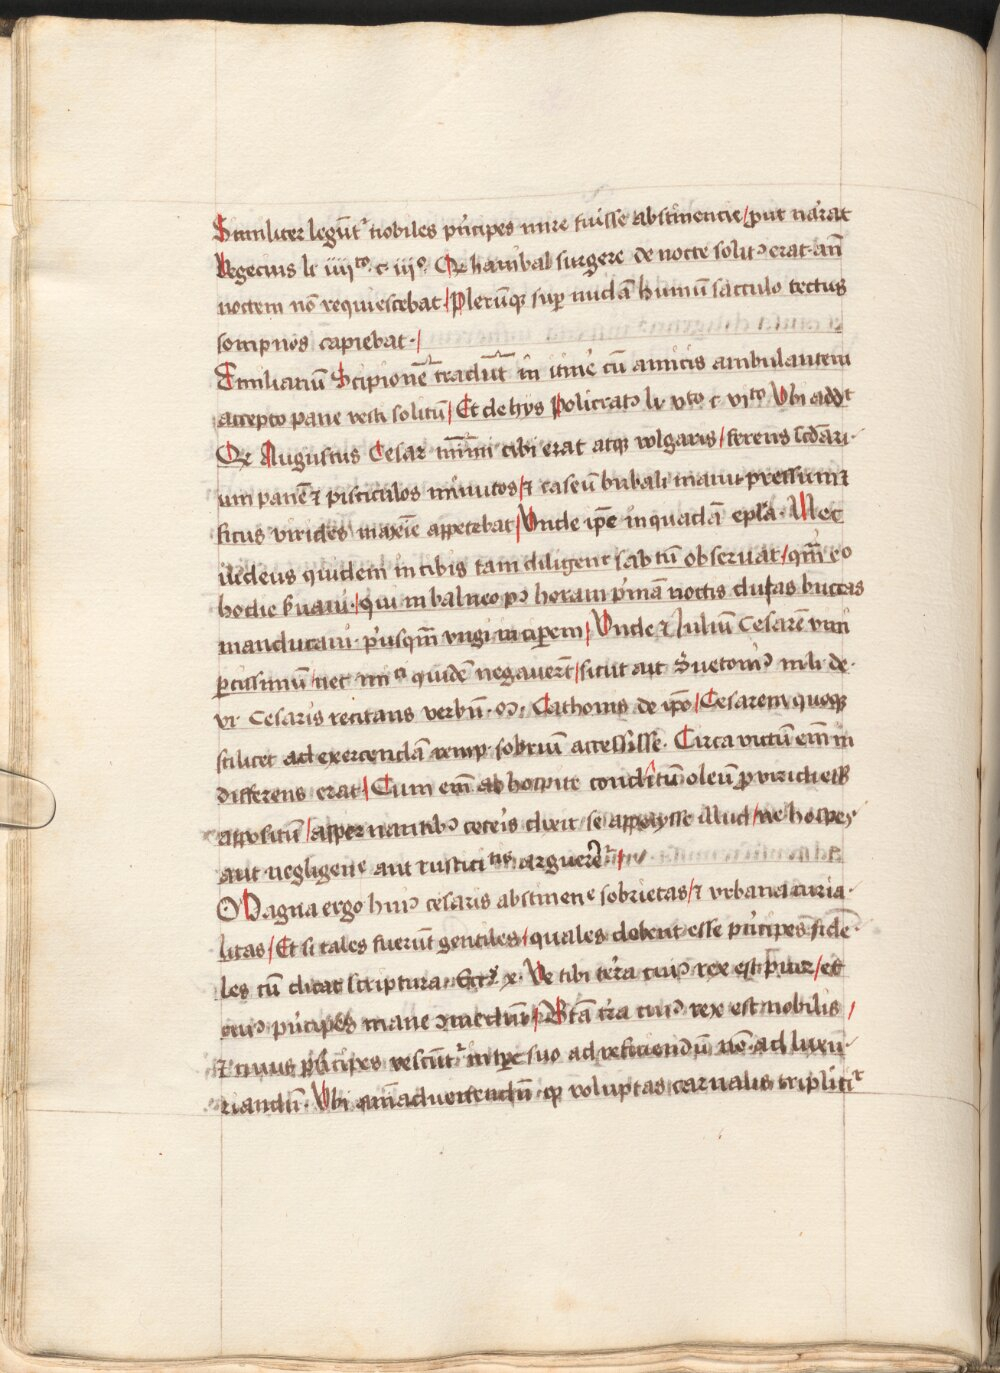 Similiter legūt᷑ nobiles pͥncipes mire fuisse abstinencie / put nar̛at
Vegecius lī iiiito c iiio Qꝫ hanibal surgere de nocte solitꝰ erat an̄
noctem nō requiescebat / Plerūqꝫ suꝑ nudā humū sacculo tectus
sompnos capiebat · /
Emilianū Scipionē tradūt᷑ in itin̛e cū amicis ambulantem
accepto pane vesci solitū / Et de hys Policratꝰ lī vto c vito Vbi addt
Qꝫ Augustus Cesar mīmi cibi erat atqꝫ volgaris / ferens scd̄ari
um panē ⁊ pisciculos minutos / ⁊ caseū bubali manu pressum ⁊
ficus virides maxīe appetebat / Vnde ip̄e in quadā epl̛a · Nec
iudeus quidem in cibis tam diligent᷑ sabtū obseruat / qm̄ eo
hodie s̛uaui / qui in balneo pꝰ horam pͥmā noctis duas buccas
manducaui pͥusqm̄ vngi inciperem / Vnde ⁊ Juliū Cesarē vini
ꝑcissimū nec inīci quidē negauer̄t / sicut ait Suetoniꝰ in li de
vi Cesaris recitans verbū · Cathonis de ip̄o / Cesarem quoqꝫ
scilicet ad exercendā remp̄ sobrium accessisse · Circa victū em̄ in
differens erat / Cum em̄ ab hospite conditū oleū ꝓ viridi eēt
appositū / aspernantibꝰ ceter̛is dixit se appetysse illud / ne hospes
aut negligene aut rusticitis arguer̄et᷑ /
Magna ergo huiꝰ cesaris abstinene sobrietas / ⁊ vrbana curia
litas / Et si tales fuerūt gentiles / quales debent esse pͥncipes fide
les cū dicat scriptura Ecc̄s x · Ve tibi ter̛a cuiꝰ rex est puer / et
cuiꝰ pͥncipes mane ꝯmedūt / Btā tr̛a cuiꝰ rex est nobilis /
⁊ cuius pͥncipes vescūt᷑ in tꝑe suo ad reficiendū nō ad luxu
riandū · Vbi am̄aduertendū qꝫ voluptas carnalis triplicit᷑